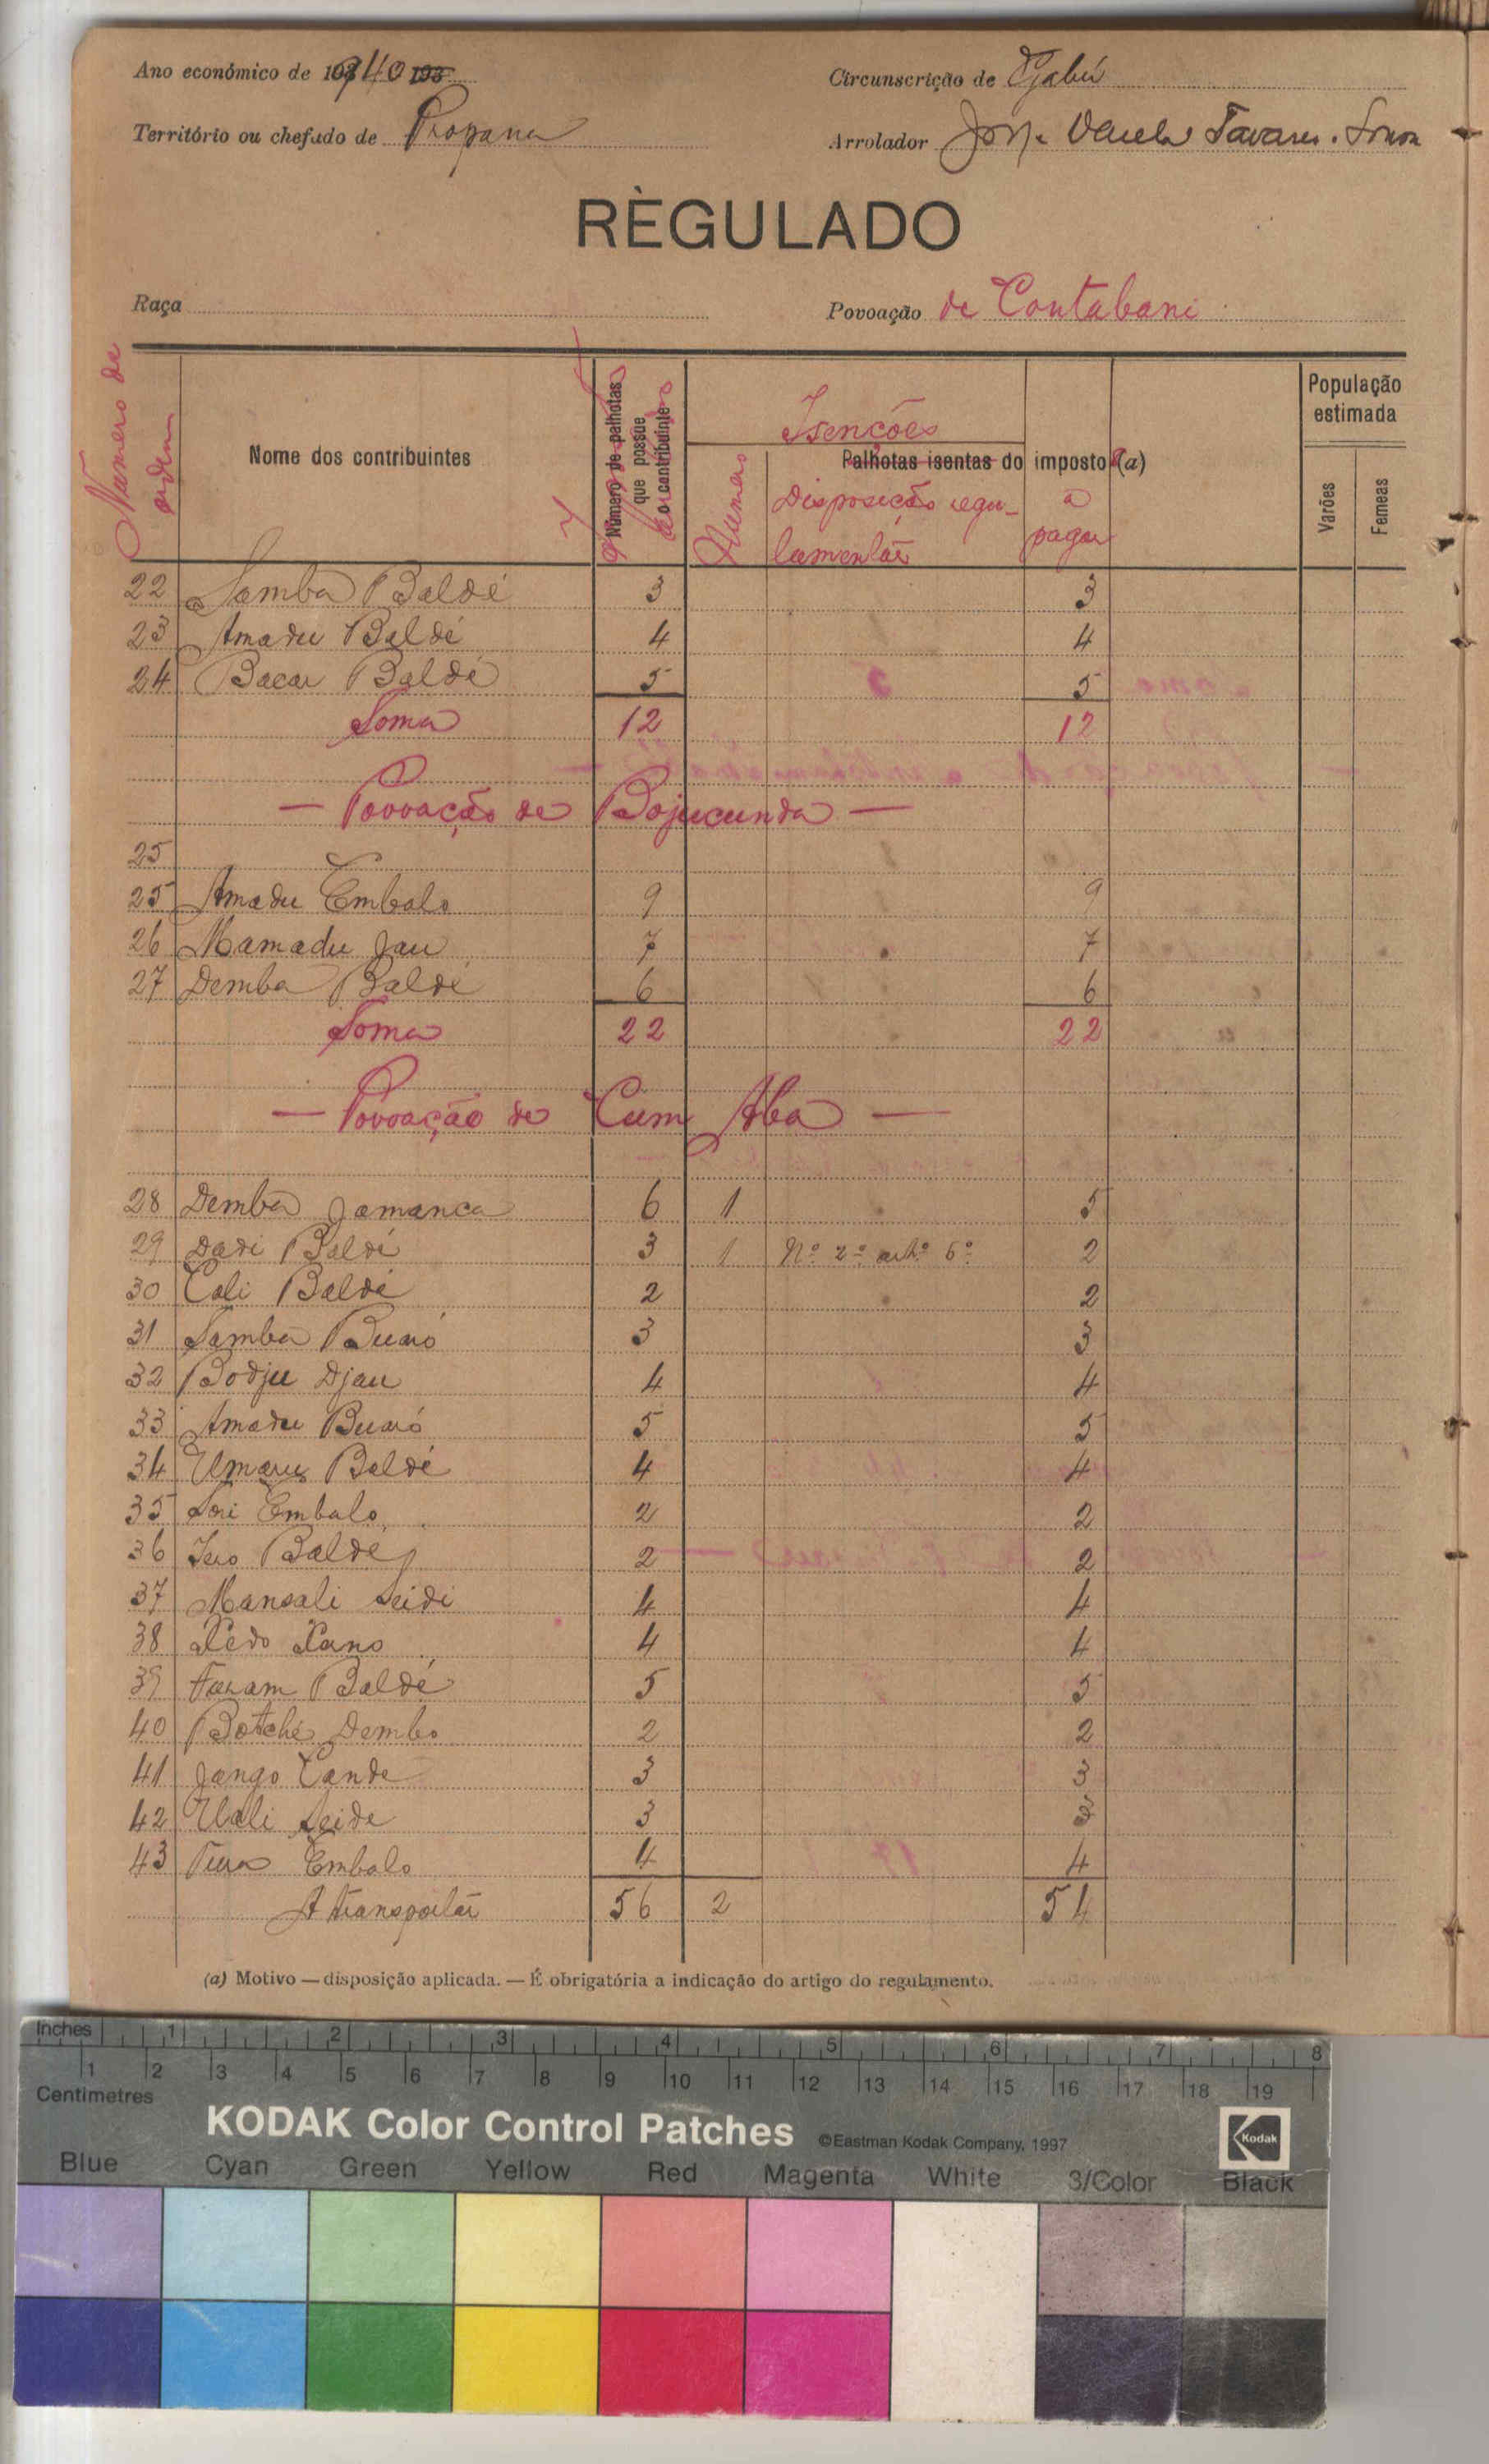 Ano económico de 1940
Circunscrição de Gabú
Território ou chefado de Propana
Arrolador José Varela Tavares
RÈGULADO
Raça
Povoação de Contabani
Numero de ordem
Nome dos contribuintes
Número de palhotas que possue o contribuinte
Isenções
Palhotas isentas do imposto (a)
Numero
Disposição regu-
lamentar
a pagar
População estimada
Varões
Femeas
22 Samba Baldé 3 3
23 Amadu Baldé 4 4
24 Bacar Baldé 5 5
Soma 12 12
— Povoação de Bojucunda —
25
25 Amadu Embalo 9 9
26 Mamadu Jau 7 7
27 Demba Baldé 6 6
Soma 22 22
— Povoação de Cum Aba —
28 Demba Jamanca 6 1 5
29 Dadi Baldé 3 1 Nº 2º artº 6º 2
30 Cali Baldé 2 2
31 Samba Buaró 3 3
32 Bodju Djau 4 4
33 Amadu Buaró 5 5
34 Umaru Baldé 4 4
35 Sori Embalo 2 2
36 Iero Baldé 2 2
37 Mansali Seidi 4 4
38 4 4
39 Baldé 5 5
40 Botche Dembo 2 2
41 Jango Cande 3 3
42 Uali Seide 3 3
43 Embalo 4 4
A transportar 56 2 54
(a) Motivo — disposição aplicada. — É obrigatória a indicação do artigo do regulamento.
Inches 1 2 3 4 5 6 7 8
1 2 3 4 5 6 7 8 9 10 11 12 13 14 15 16 17 18 19
Centimetres
KODAK Color Control Patches ©Eastman Kodak Company, 1997 Kodak
Blue Cyan Green Yellow Red Magenta White 3/Color Black